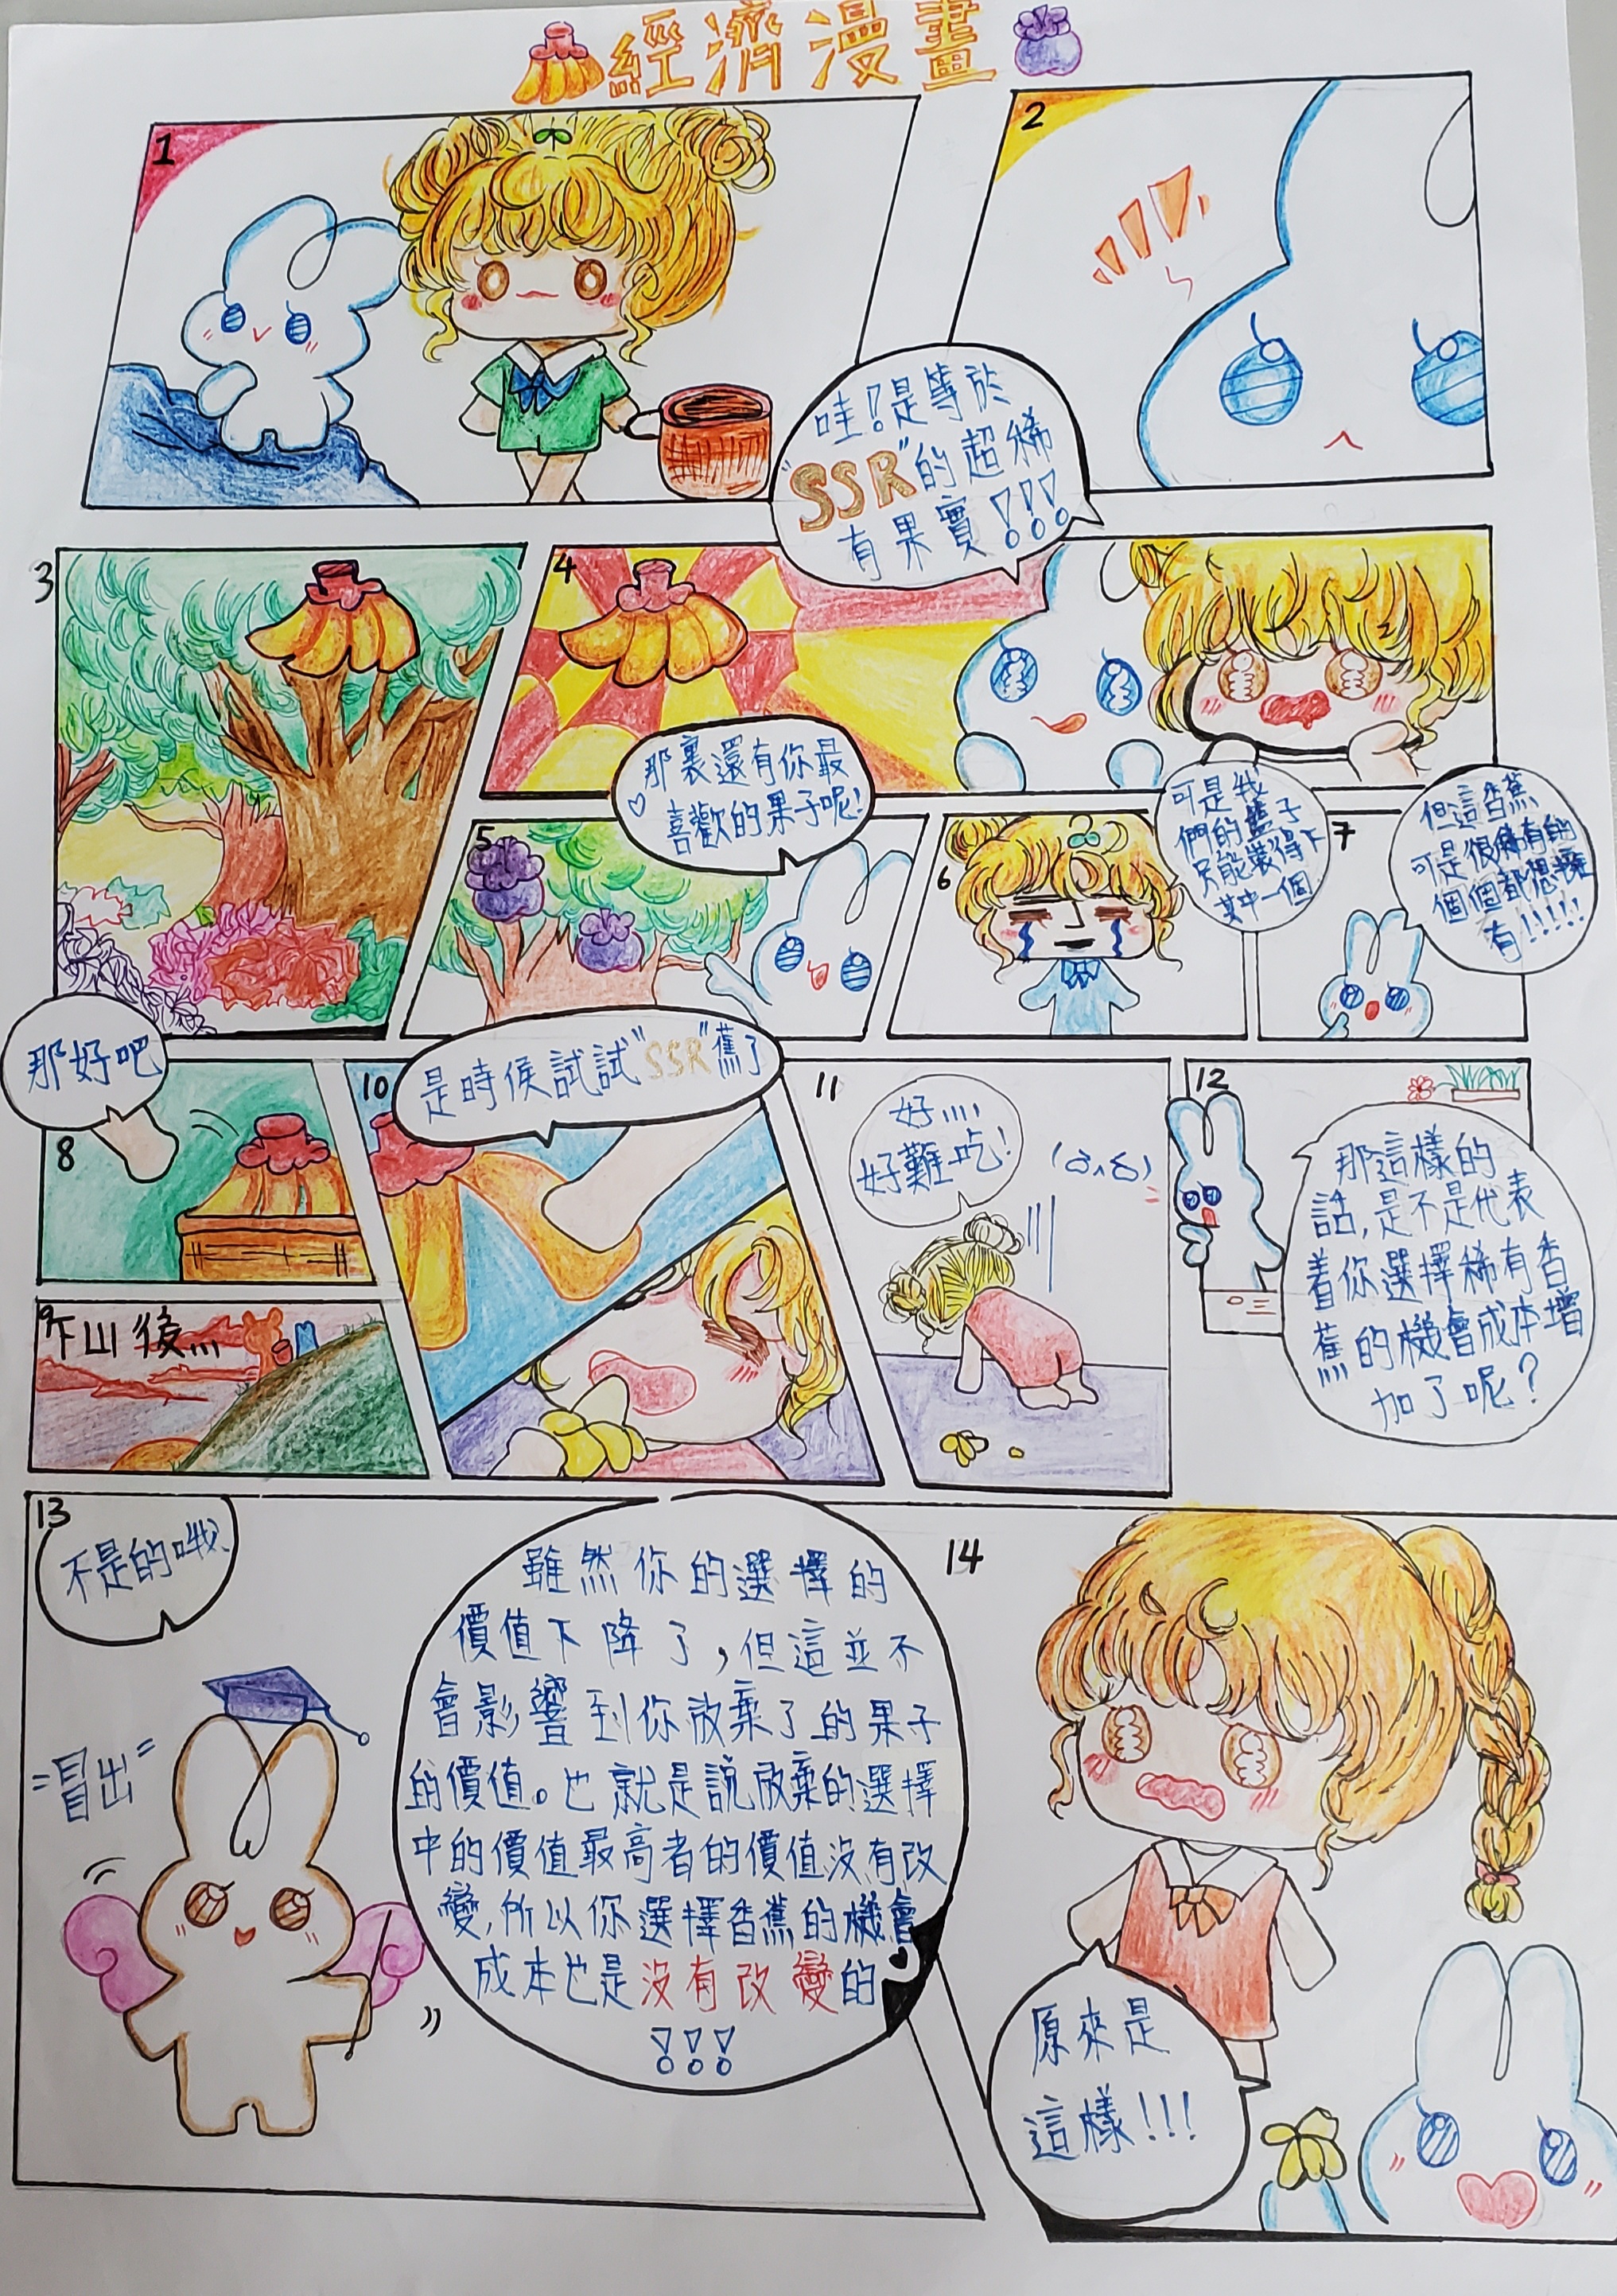 經濟漫畫
1
2
哇!是等於
"SSR"的超稀
有果實!!!
3
4
那裏還有你最
喜歡的果子呢!
5
6
可是我
們的籃子
只能裝得下
其中一個
7
但這香蕉
可是很稀有的
個個都想擁
有!!!!!
那好吧
8
9
下山後...
10
是時候試試"SSR"蕉了
11
好....
好難吃!
12
那這樣的
話,是不是代表
着你選擇稀有香
蕉的機會成本增
加了呢?
13
不是的哦
"冒出"
雖然你的選擇的
價值下降了,但這並不
會影響到你放棄了的果子
的價值。也就是說放棄的選擇
中的價值最高者的價值沒有改
變,所以你選擇香蕉的機會
成本也是沒有改變的
!!!
14
原來是
這樣!!!